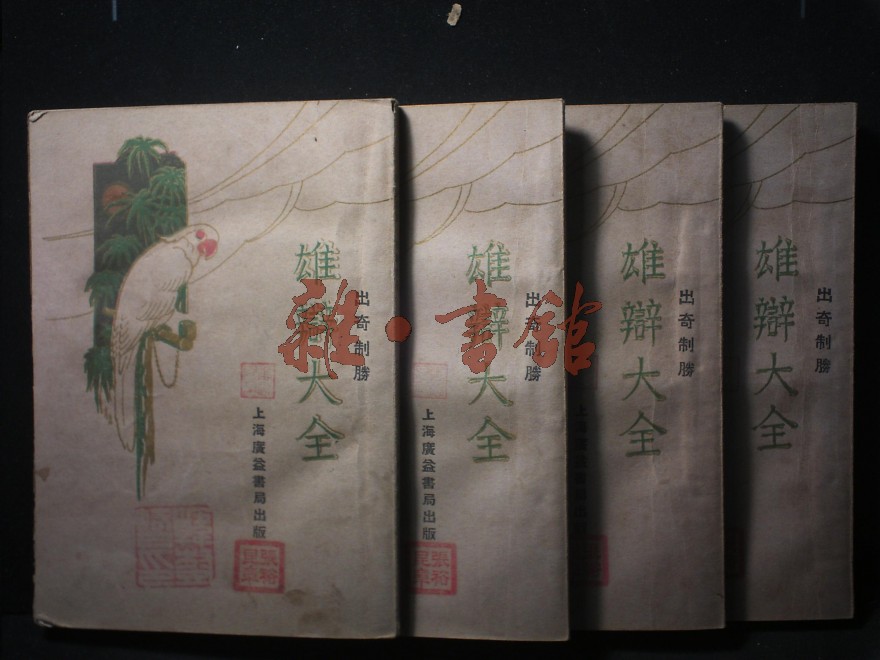 出奇制勝
雄辯大全
上海廣益書局出版
張裕
出奇制勝
雄辯大全
上海廣益書局出版
張裕
出奇制勝
雄辯大全
上海
出奇制勝
雄辯大全
雜·書館